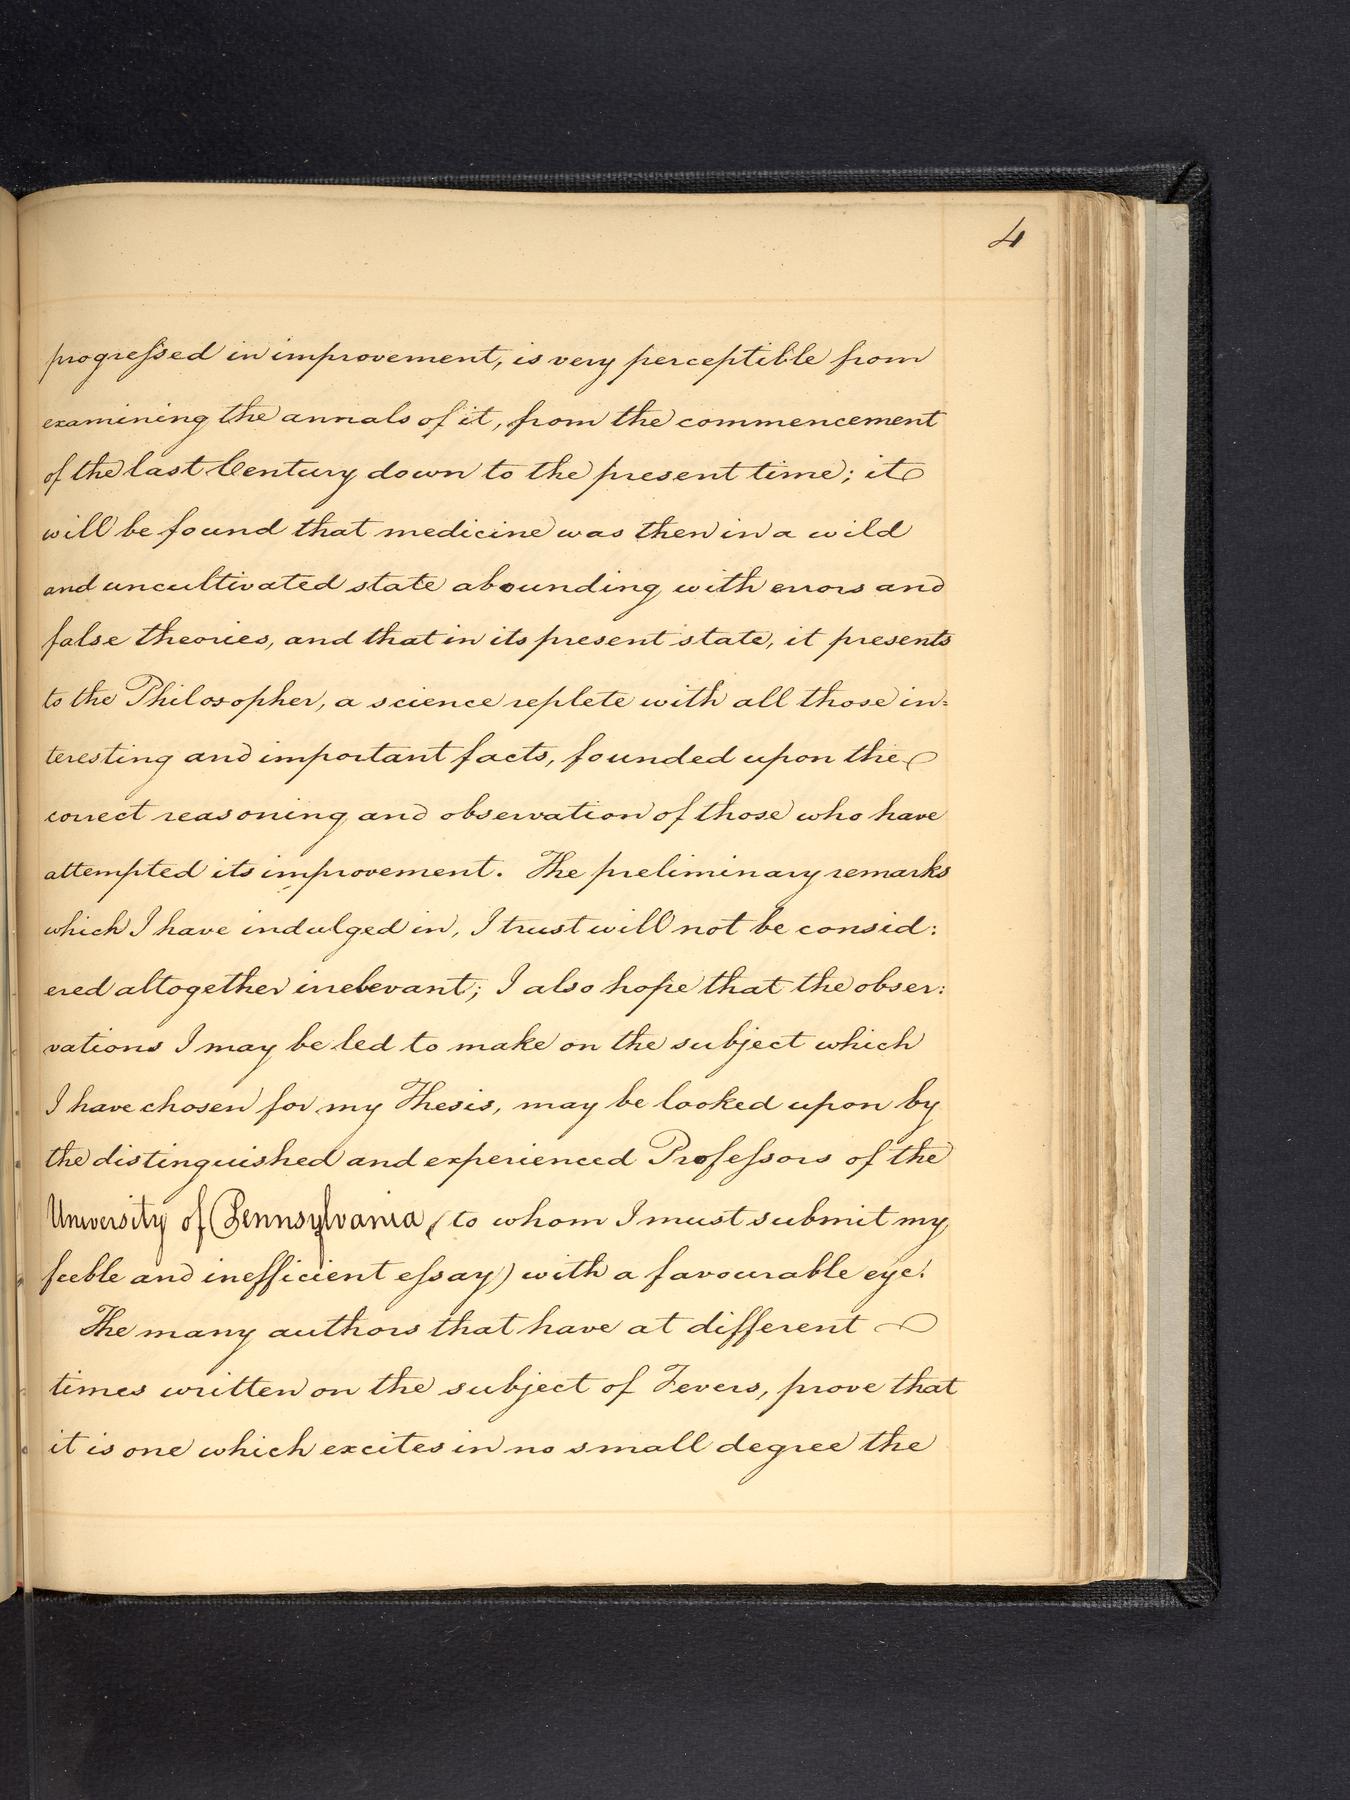 4
progreſsed in improvement, is very perceptible from
examining the annals of it, from the commencement
of the last Century down to the present time; it
will be found that medicine was then in a wild
and uncultivated state abounding with errors and
false theories, and that in its present state, it presents
to the Philosopher, a science replete with all those in=
teresting and important facts, founded upon the
correct reasoning and observation of those who have
attempted its improvement. The preliminary remarks
which I have indulged in, I trust will not be consid:
ered altogether irrelevant; I also hope that the obser:
vations I may be led to make on the subject which
I have chosen for my Thesis, may be looked upon by
the distinguished and experienced Profeſsors of the
University of Pennsylvania (to whom I must submit my
feeble and inefficient eſsay) with a favourable eye.
The many authors that have at different
times written on the subject of Fevers, prove that
it is one which excites in no small degree the